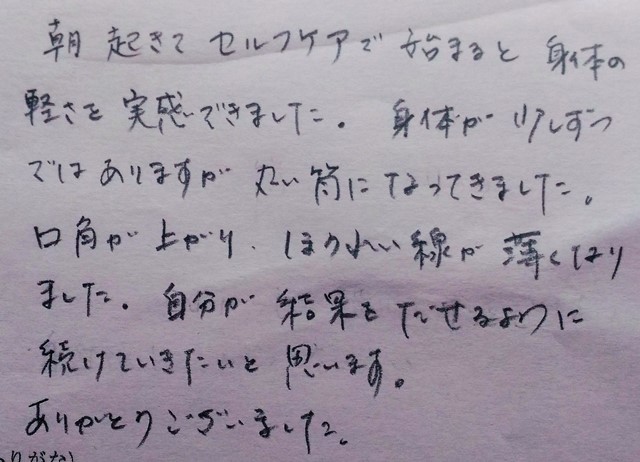 朝 起きて セルフケアで 始まると 身体の
軽さを 実感できました。 身体が 少しずつ
ではありますが 丸い筒に なってきました。
口角が 上がり、ほうれい線が 薄くなり
ました。 自分が 結果を だせるように
続けていきたいと 思います。
ありがとうございました。
りがな)